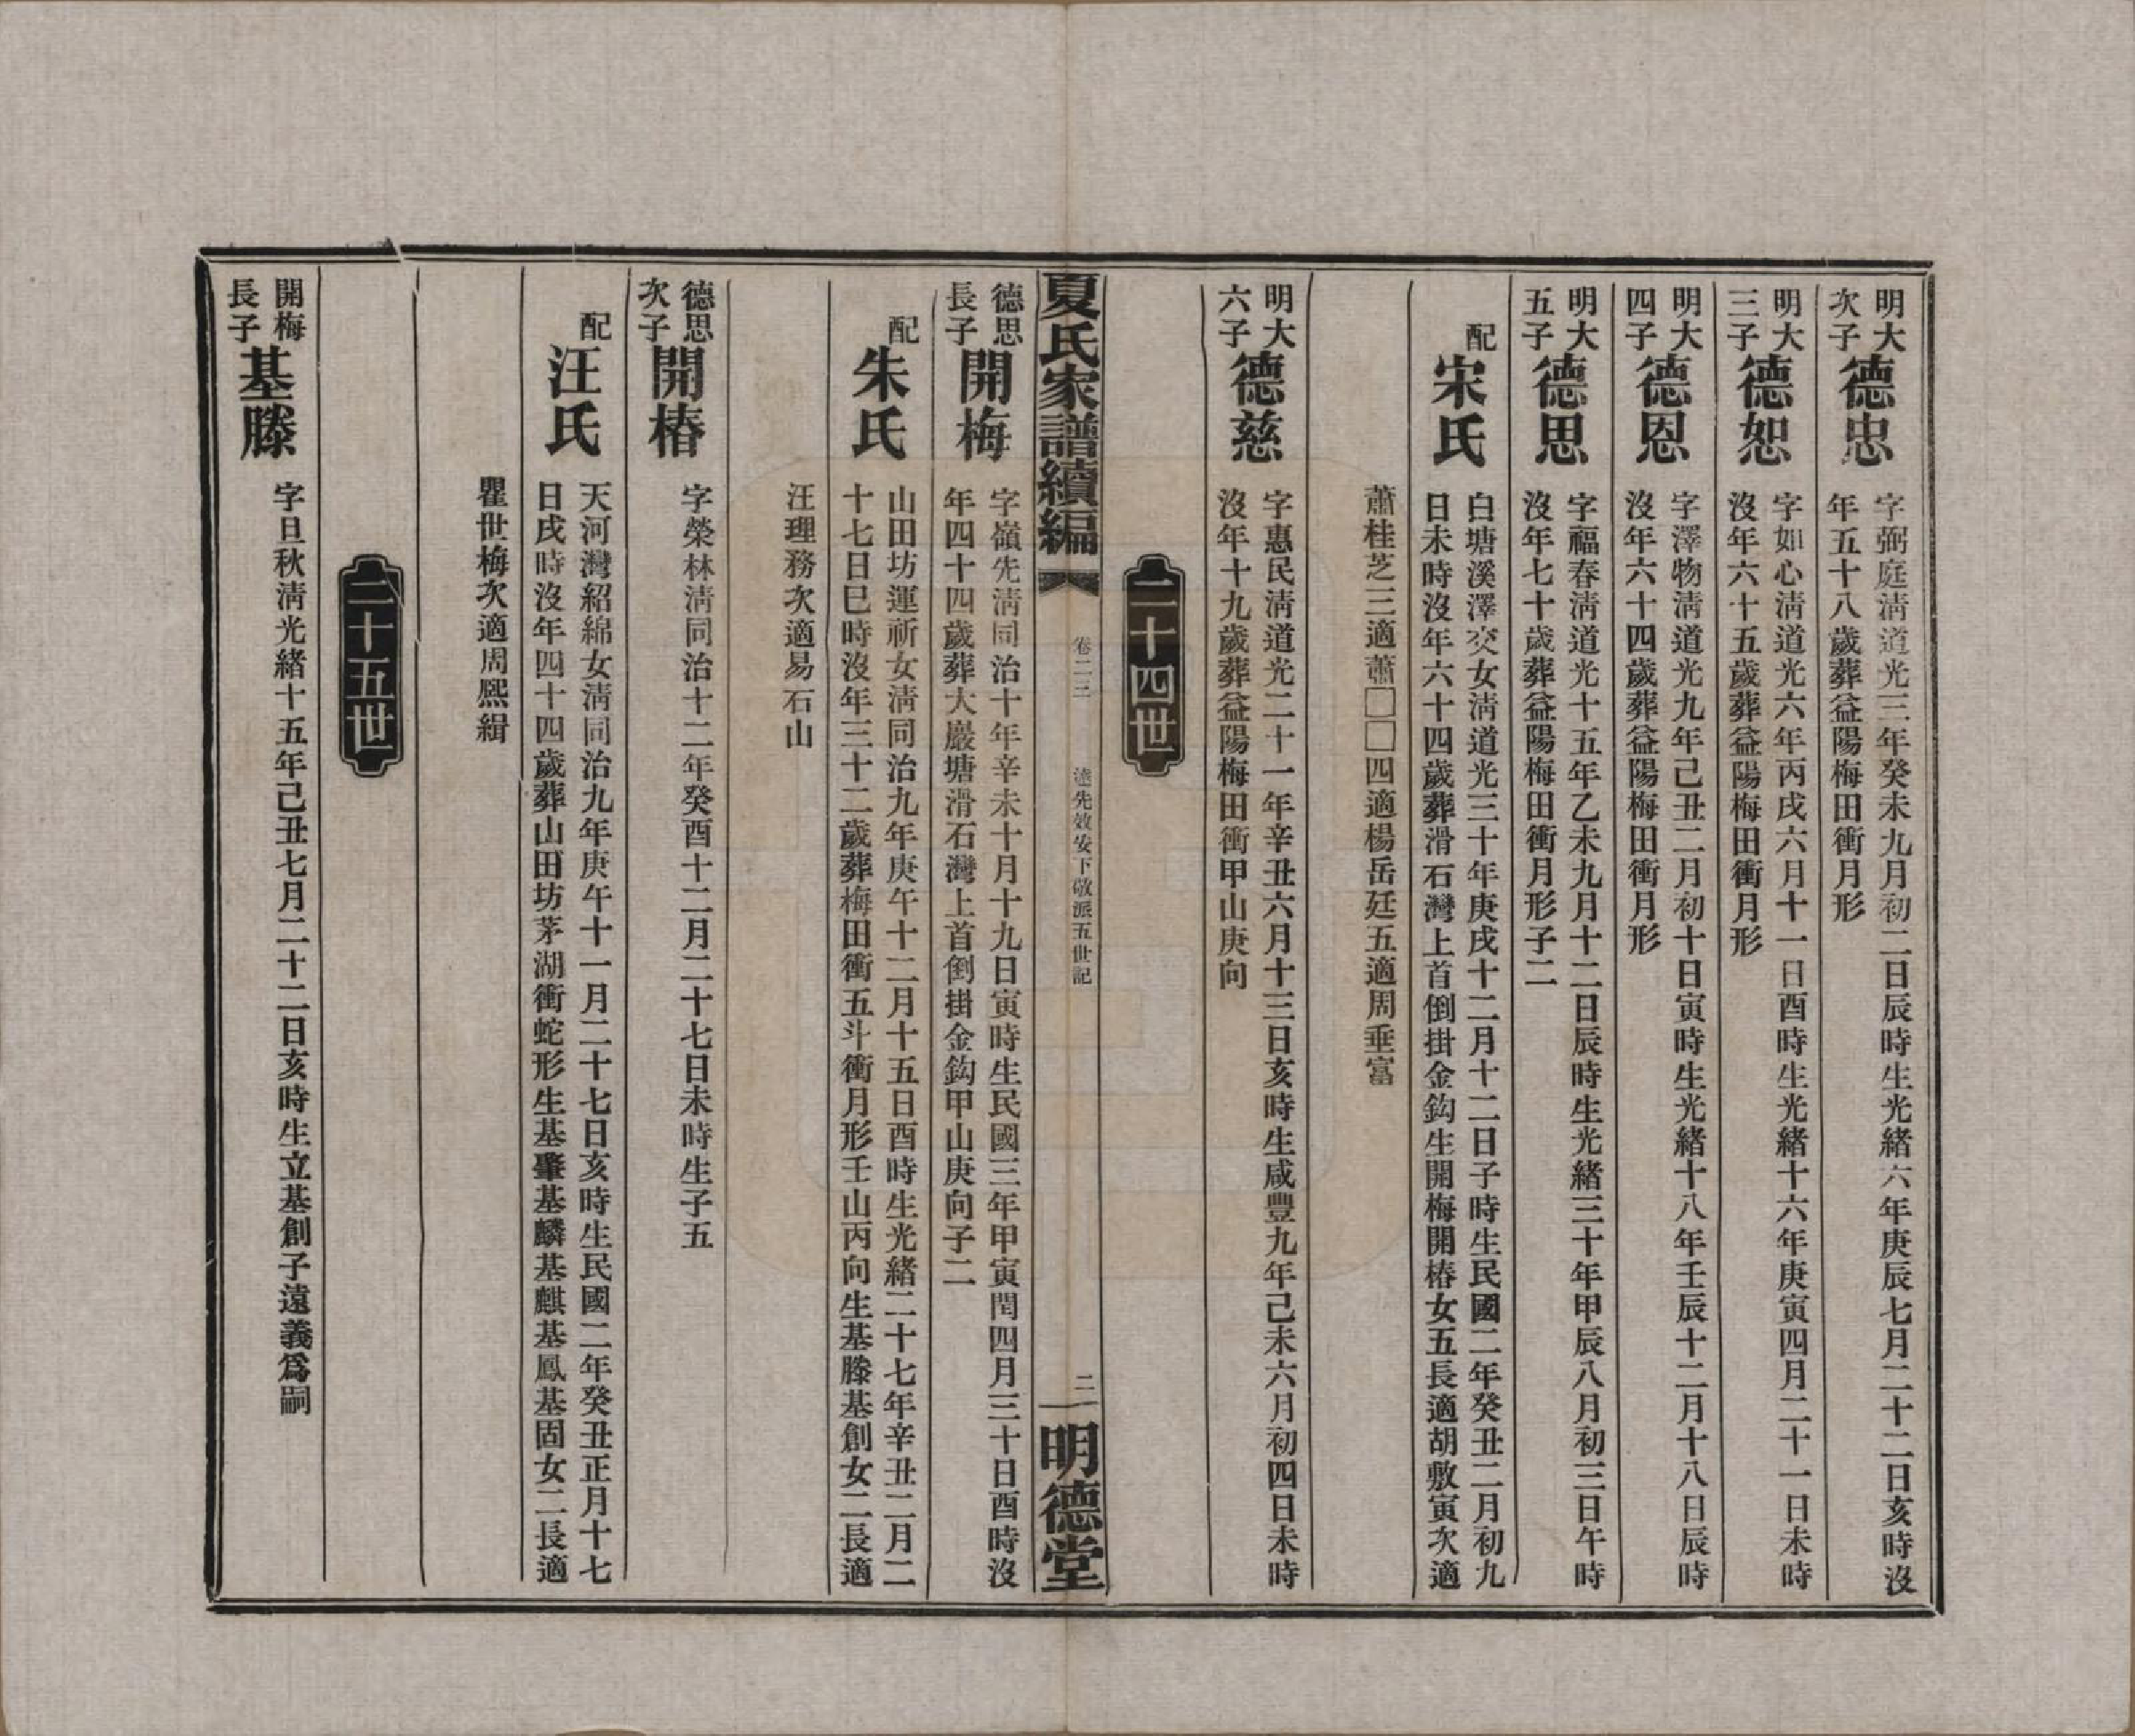 明大
次子
德忠
字弼庭淸道光三年癸未九月初二日辰時生光緒六年庚辰七月二十二日亥時沒
年五十八歲葬益陽梅田衝月形
明大
三子
德恕
字如心淸道光六年丙戌六月十一日酉時生光緒十六年庚寅四月二十一日未時
沒年六十五歲葬益陽梅田衝月形
明大
四子
德恩
字澤物淸道光九年己丑二月初十日寅時生光緒十八年壬辰十二月十八日辰時
沒年六十四歲葬益陽梅田衝月形
明大
五子
德思
字福春淸道光十五年乙未九月十二日辰時生光緒三十年甲辰八月初三日午時
沒年七十歲葬益陽梅田衝月形子二
配
宋氏
白塘溪澤交女淸道光三十年庚戌十二月十二日子時生民國二年癸丑二月初九
日未時沒年六十四歲葬滑石灣上首倒掛金鈎生開梅開椿女五長適胡敷寅次適
蕭桂芝三適蕭□□四適楊岳廷五適周垂富
明大
六子
德慈
字惠民淸道光二十一年辛丑六月十三日亥時生咸豐九年己未六月初四日未時
沒年十九歲葬益陽梅田衝甲山庚向
二十四世
夏氏家譜續編
卷二三
遠先效安下敬派五世記
二
明德堂
德思
長子
開梅
字嶺先淸同治十年辛未十月十九日寅時生民國三年甲寅閏四月三十日酉時沒
年四十四歲葬大巖塘滑石灣上首倒掛金鈎甲山庚向子二
配
朱氏
山田坊運祈女淸同治九年庚午十二月十五日酉時生光緒二十七年辛丑二月二
十七日巳時沒年三十二歲葬梅田衝五斗衝月形壬山丙向生基滕基創女二長適
汪理務次適易石山
德思
次子
開椿
字榮林淸同治十二年癸酉十二月二十七日未時生子五
配
汪氏
天河灣紹綿女淸同治九年庚午十一月二十七日亥時生民國二年癸丑正月十七
日戌時沒年四十四歲葬山田坊茅湖衝蛇形生基肇基麟基麒基鳳基固女二長適
瞿世梅次適周熙緝
二十五世
開梅
長子
基滕
字旦秋淸光緒十五年己丑七月二十二日亥時生立基創子遠義爲嗣